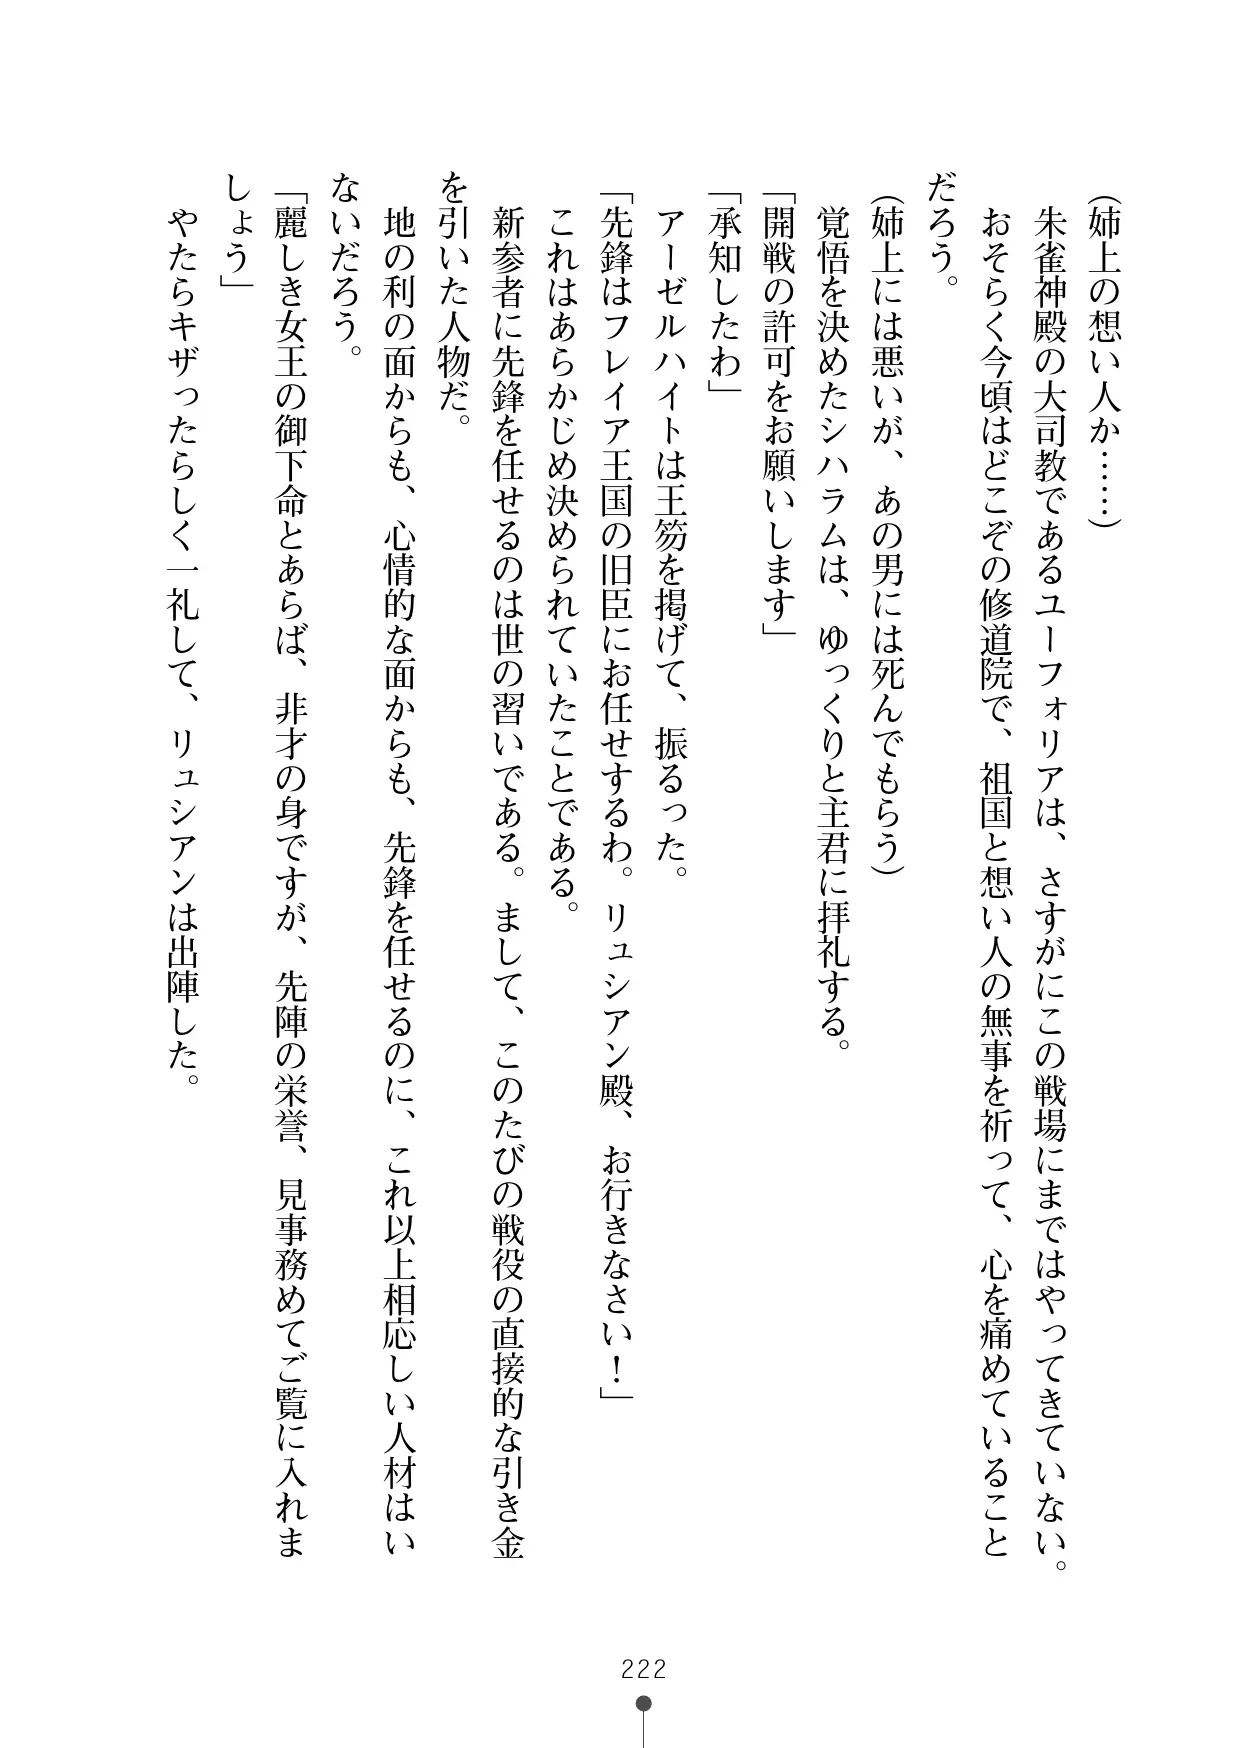 （姉上の想い人か……）
　朱雀神殿の大司教であるユーフォリアは、さすがにこの戦場にまではやってきていない。
　おそらく今頃はどこぞの修道院で、祖国と想い人の無事を祈って、心を痛めていること
だろう。
（姉上には悪いが、あの男には死んでもらう）
　覚悟を決めたシハラムは、ゆっくりと主君に拝礼する。
「開戦の許可をお願いします」
「承知したわ」
　アーゼルハイトは王笏を掲げて、振るった。
「先鋒はフレイア王国の旧臣にお任せするわ。リュシアン殿、お行きなさい！」
　これはあらかじめ決められていたことである。
　新参者に先鋒を任せるのは世の習いである。まして、このたびの戦役の直接的な引き金
を引いた人物だ。
　地の利の面からも、心情的な面からも、先鋒を任せるのに、これ以上相応しい人材はい
ないだろう。
「麗しき女王の御下命とあらば、非才の身ですが、先陣の栄誉、見事務めてご覧に入れま
しょう」
　やたらキザったらしく一礼して、リュシアンは出陣した。
222